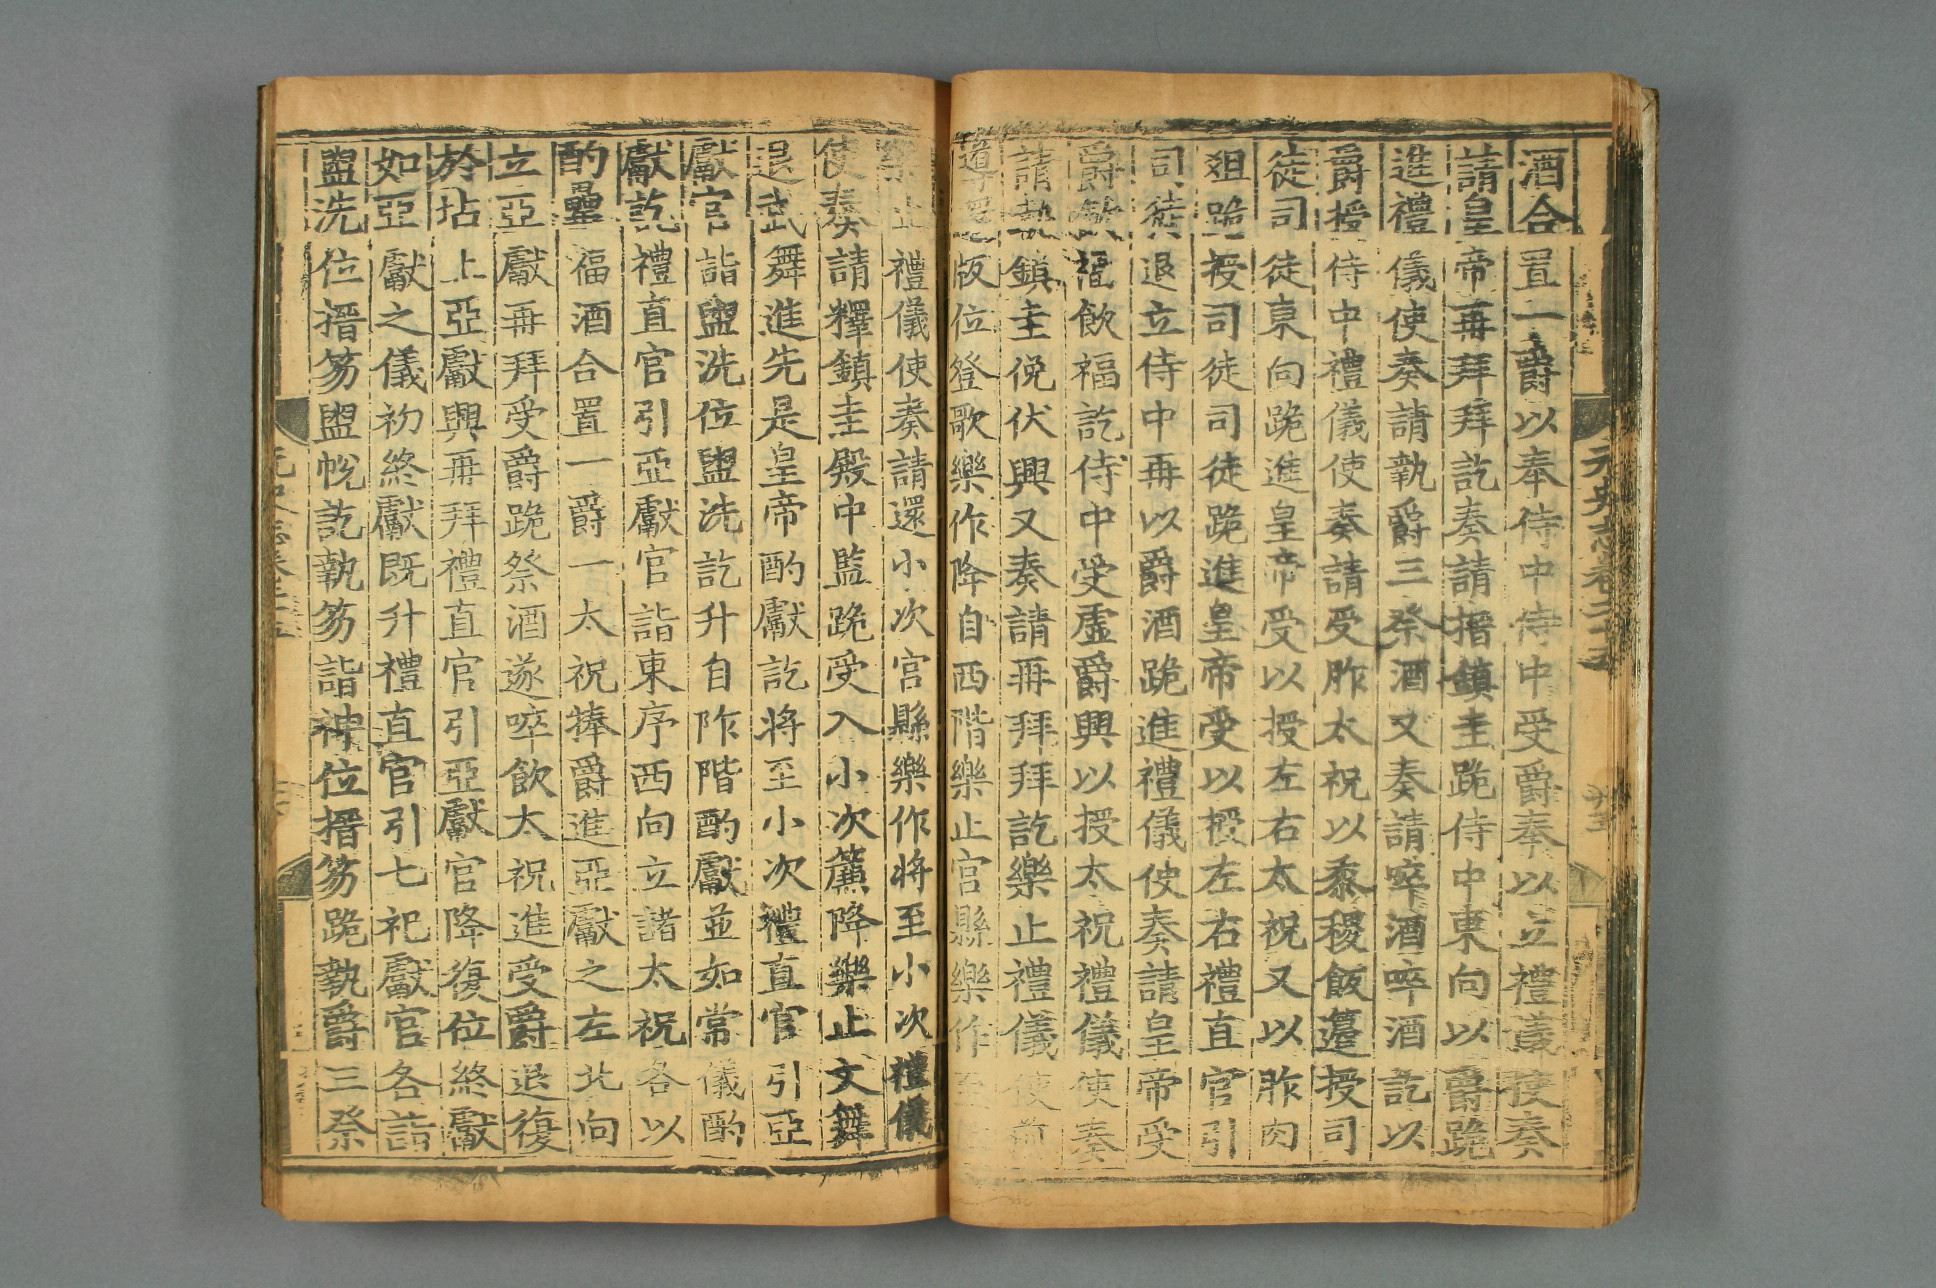 元史志卷二十五
酒合置一爵以奉侍中侍中受爵奉以立禮儀使奏
請皇帝再拜拜訖奏請搢鎮圭跪侍中東向以爵跪
進禮儀使奏請執爵三祭酒又奏請啐酒啐酒訖以
爵授侍中禮儀使奏請受胙太祝以黍稷飯籩授司
徒司徒東向跪進皇帝受以授左右太祝又以胙肉
俎跪授司徒司徒跪進皇帝受以授左右禮直官引
司徒退立侍中再以爵酒跪進禮儀使奏請皇帝受
爵飲福飲福訖侍中受虛爵興以授太祝禮儀使奏
請執鎮圭俛伏興又奏請再拜拜訖樂止禮儀使前
導還版位登歌樂作降自西階樂止宮縣樂作至位
樂止禮儀使奏請還小次宮縣樂作將至小次禮儀
使奏請釋鎮圭殿中監跪受入小次簾降樂止文舞
退武舞進先是皇帝酌獻訖將至小次禮直官引亞
獻官詣盥洗位盥洗訖升自阼階酌獻並如常儀酌
獻訖禮直官引亞獻官詣東序西向立諸太祝各以
酌罍福酒合置一爵一太祝捧爵進亞獻之左北向
立亞獻再拜受爵跪祭酒遂啐飲太祝進受爵退復
於坫上亞獻興再拜禮直官引亞獻官降復位終獻
如亞獻之儀初終獻既升禮直官引七祀獻官各詣
盥洗位搢笏盥帨訖執笏詣神位搢笏跪執爵三祭
元史志卷二十五